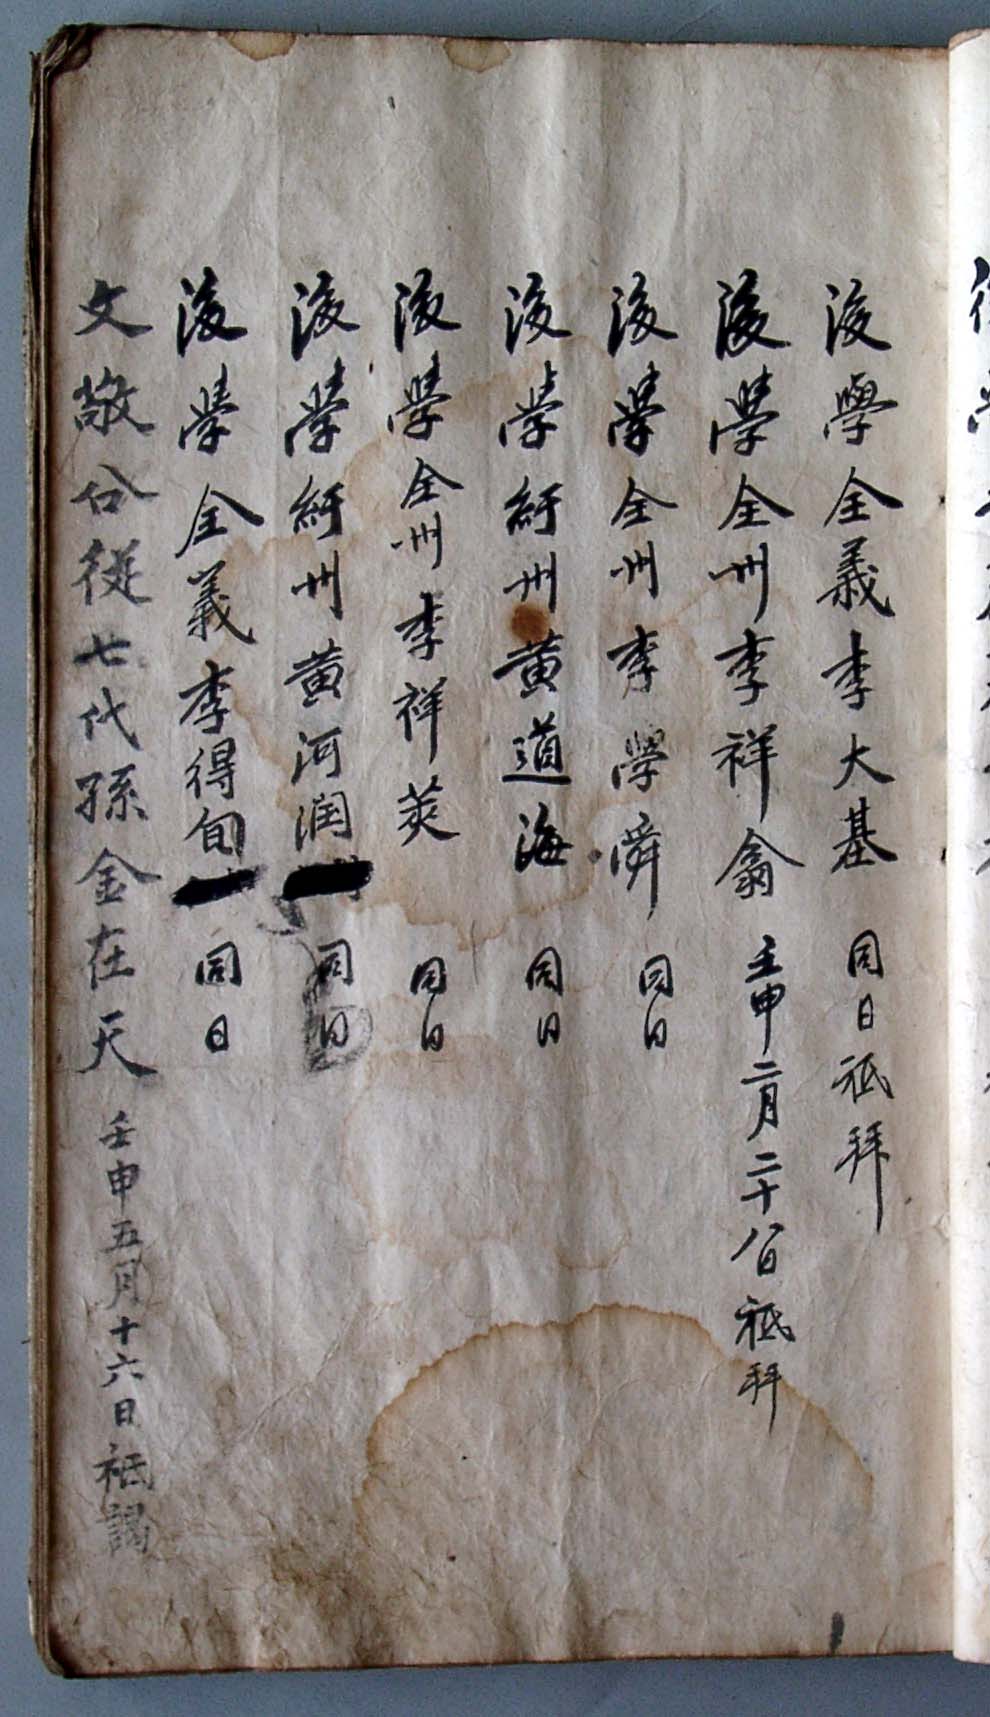 後學全義李大基 同日祗拜
後學全州李祥翕 壬申二月二十八日祗拜
後學全州李學舜 同日
後學紆州黃道海 同日
後學全州李祥莢 同日
後學紆州黃河潤 同日
後學全義李得旬 同日
文敬公從七代孫金在天 壬申五月十六日祗謁